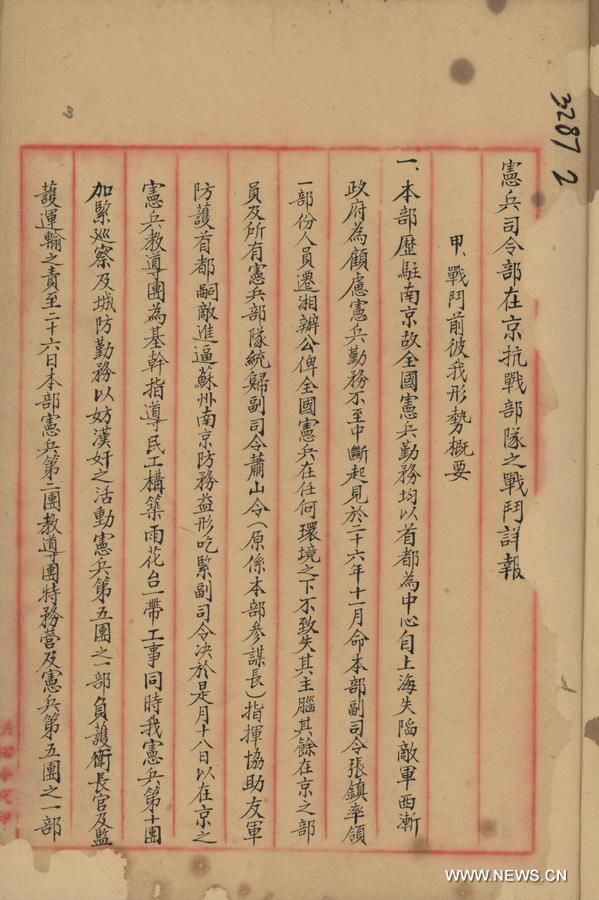 3287 2
憲兵司令部在京抗戰部隊之戰鬥詳報
甲、戰鬥前彼我形勢概要
一、本部歷駐南京故全國憲兵勤務均以首都為中心自上海失陷敵軍西漸
政府為顧慮憲兵勤務不至中斷起見於二十六年十一月命本部副司令張鎮率領
一部份人員遷湘辦公俾全國憲兵在任何環境之下不致失其主腦其餘在京之部
員及所有憲兵部隊統歸副司令蕭山令(原係本部參謀長)指揮協助友軍
防護首都嗣敵進逼蘇州南京防務益形吃緊副司令決於是月十八日以在京之
憲兵教導團為基幹指導民工構築雨花台一帶工事同時我憲兵第十團
加緊巡察及城防勤務以妨漢奸之活動憲兵第五團之一部負護衛長官及監
護運輸之責至二十六日本部憲兵第二團教導團特務營及憲兵第五團之一部
www.news.cn